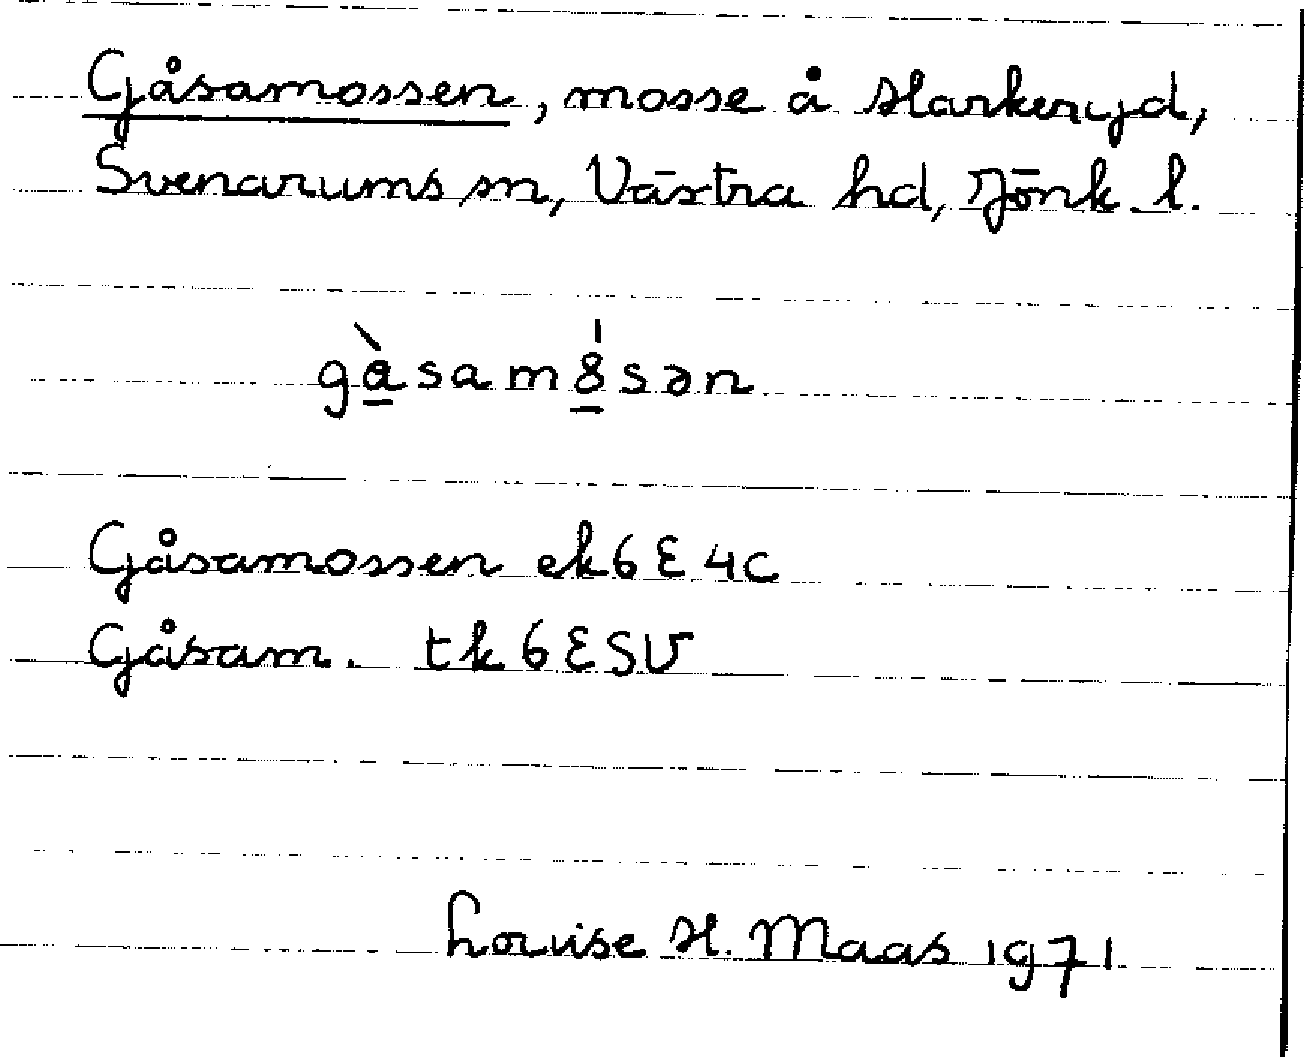 Gåsamossen, mosse å Harkeryd,
Svenarums sn, Västra hd, Jönk l.
gàsamósən
Gåsamossen ek 6 E 4c
Gåsam. tk 6 E SV
Louise H. Maas 1971